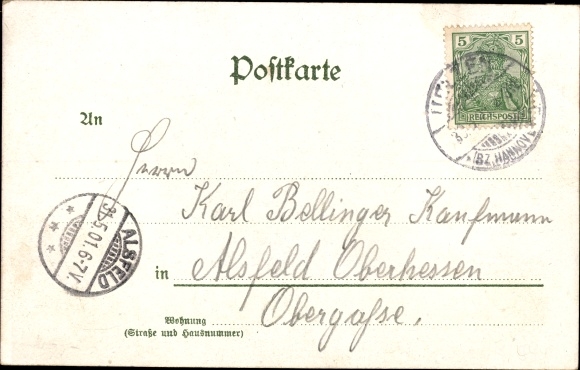 5
REICHSPOST
UELZEN
(BZ. HANNOV.
Postkarte
An
Herrn
Karl Bellinger Kaufmann
in Alsfeld Oberhessen
Wohnung Obergasse.
(Straße und Hausnummer)
ALSFELD
31.5.01.6-7V.